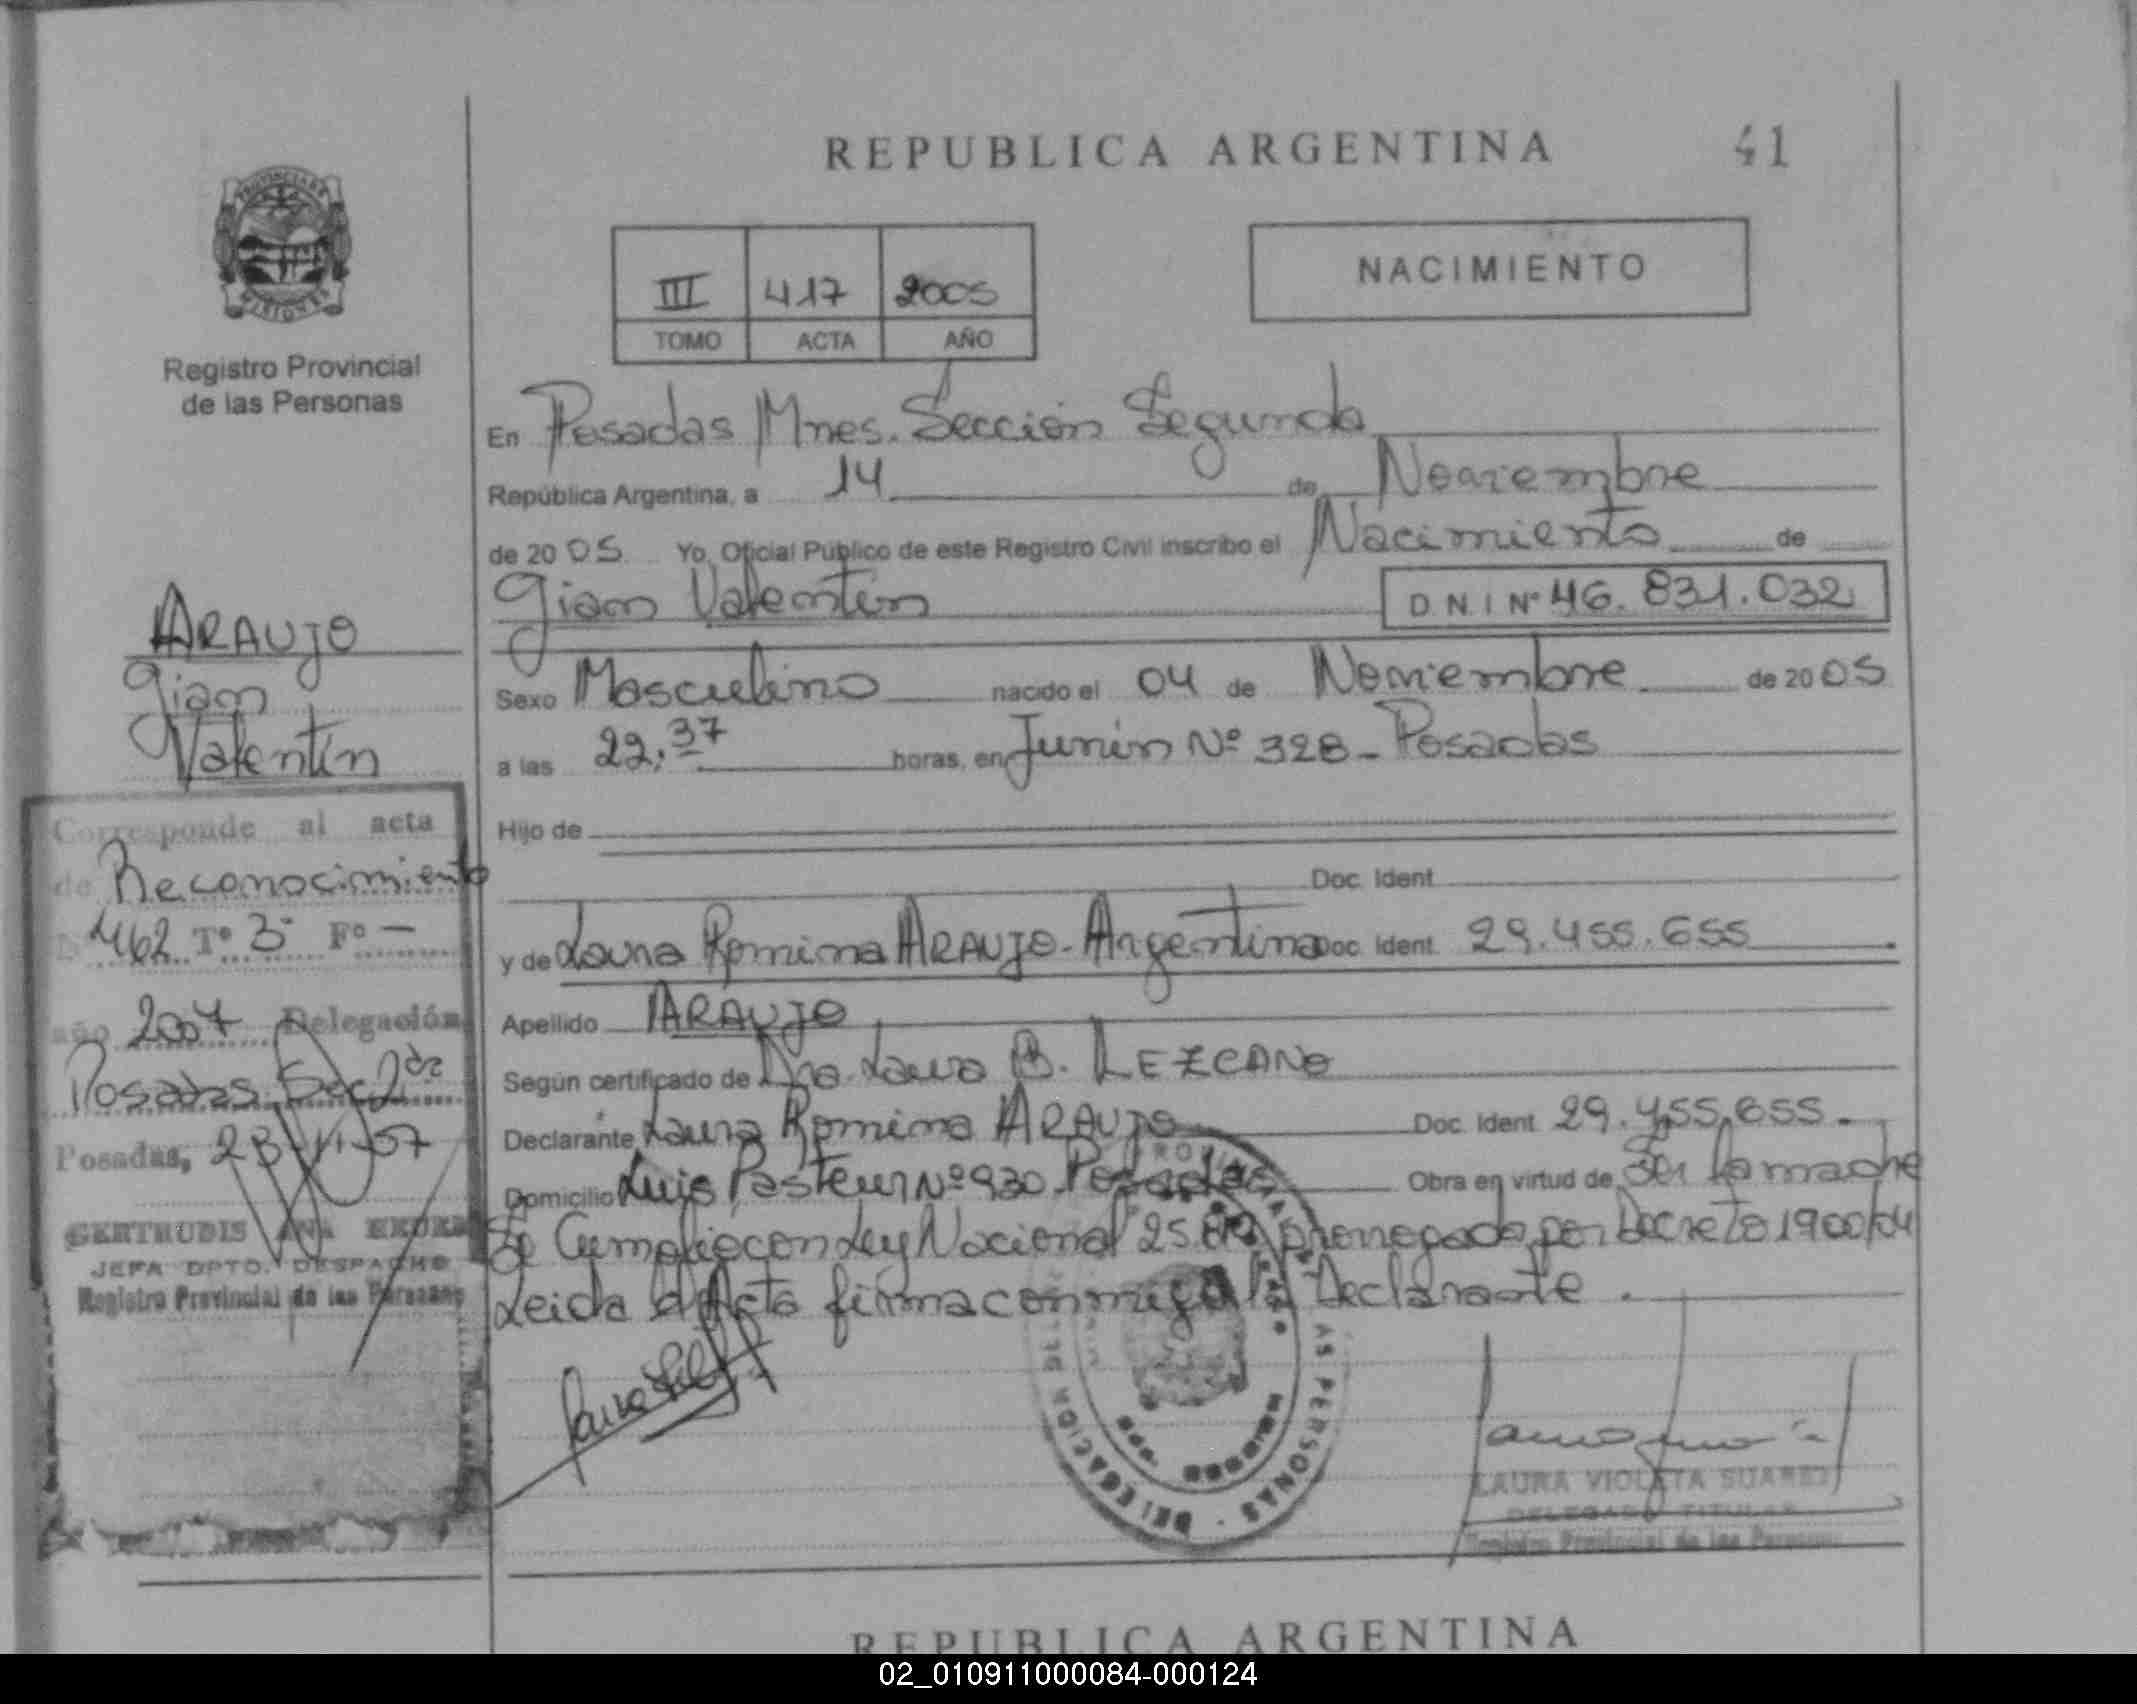 REPUBLICA ARGENTINA
41
PROVINCIA DE
MISIONES
Registro Provincial
de las Personas
III 417 2005
TOMO ACTA AÑO
NACIMIENTO
En Posadas Mnes. Sección Segunda
República Argentina, a 14 de Noviembre
de 2005 Yo, Oficial Público de este Registro Civil inscribo el Nacimiento de
Gian Valentín D.N.I Nº 46.831.032
Sexo Masculino nacido el 04 de Noviembre de 2005
a las 22,37 horas, en Junín Nº 328 - Posadas
Hijo de
Doc. Ident.
y de Laura Romina ARAUJO - Argentina Doc. Ident. 29.455.655
Apellido ARAUJO
Según certificado de Dra. Laura B. LEZCANO
Declarante Laura Romina ARAUJO Doc. Ident. 29.455.655.-
Domicilio Luis Pasteur Nº 930 Posadas Obra en virtud de Ser la madre
Se Cumplió con Ley Nacional prorrogada por Decreto 1900/04
Leida el Acta firma conmigo la Declarante.
LAURA VIOLETA SUAREZ
DELEGADA TITULAR
Registro Provincial de las Personas
ARAUJO
Gian
Valentín
Corresponde al acta
de Reconocimiento
462 Tº 3º Fº -
año 2007 Delegación
Posadas Sec 2da
Posadas, 23-11-07
GERTRUDIS ANA
JEFA DPTO. DESPACHO
Registro Provincial de las Personas
REPUBLICA ARGENTINA
02_010911000084-000124